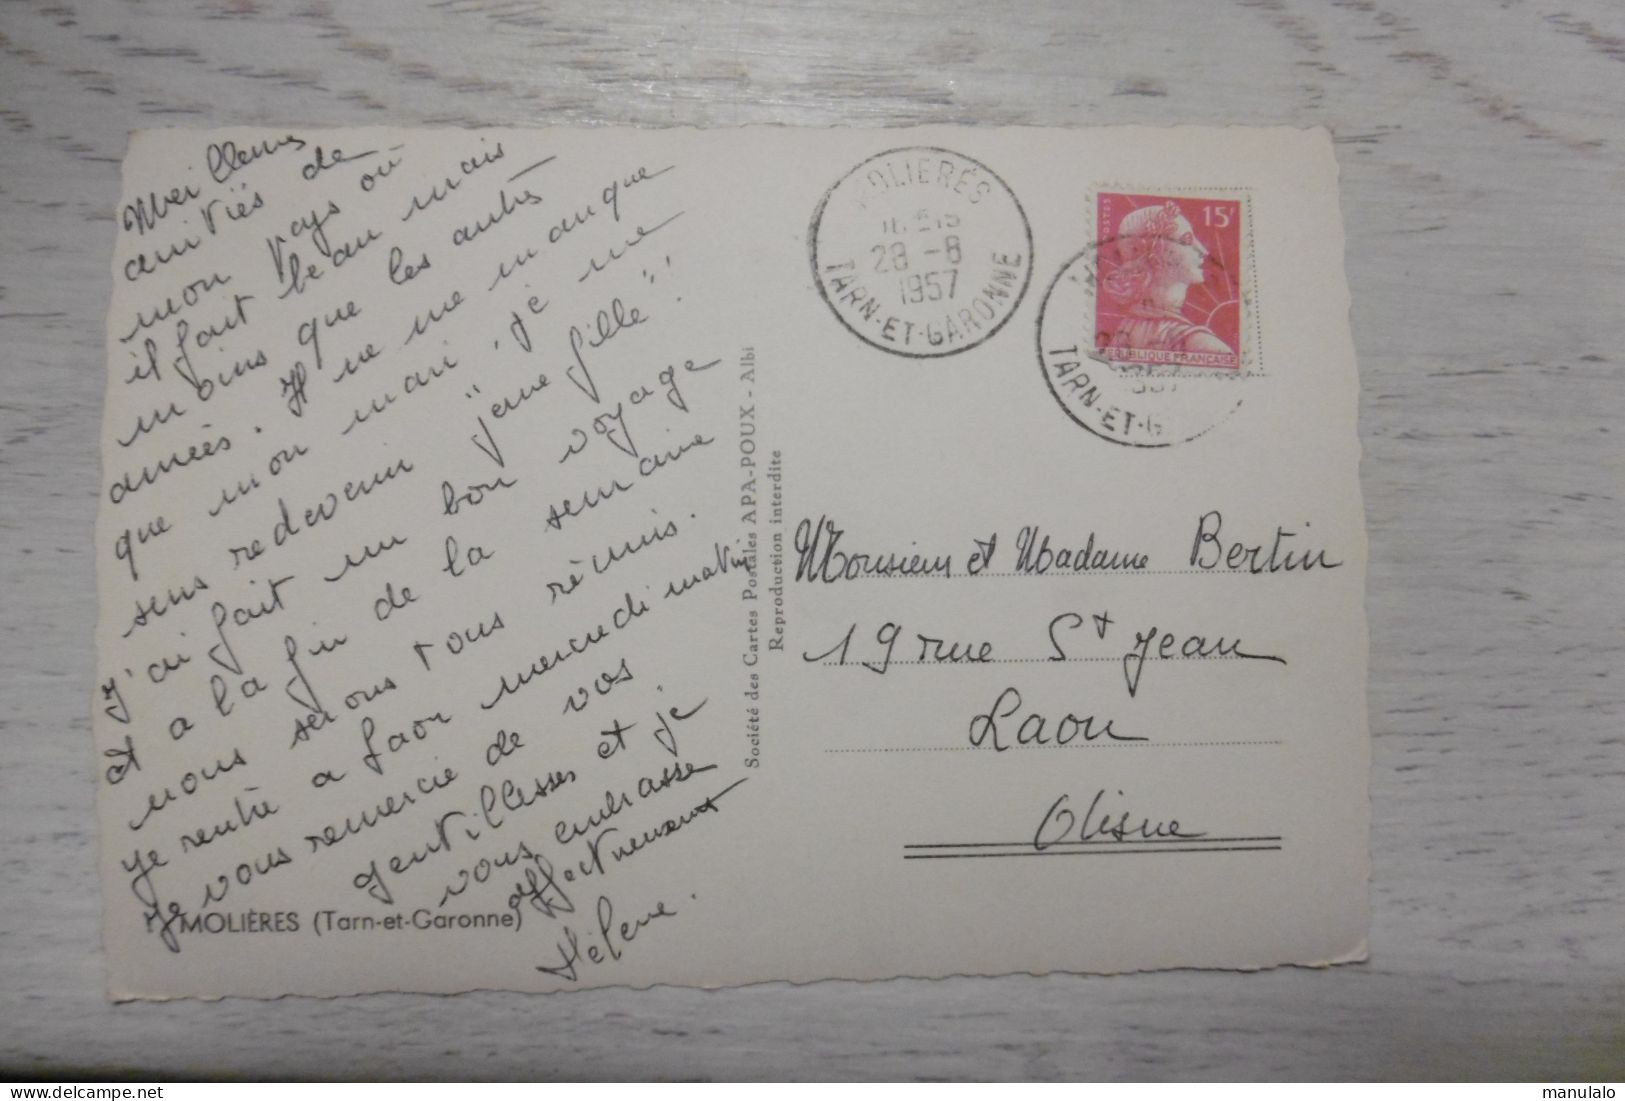 Meilleures
amitiés de
mon pays où
il fait beau mais
moins que les autres
années. Il ne me manque
que mon mari, je me
sens redevenir "jeune fille"!
J'ai fait un bon voyage
et a la fin de la semaine
nous serons tous réunis.
Je rentre a Laon mercredi matin
Je vous remercie de vos
gentillesses et je
vous embrasse
affectueusement
Hélène.
MOLIÈRES (Tarn-et-Garonne)
Société des Cartes Postales APA-POUX - Albi
Reproduction interdite
MOLIERES
28 - 8
1957
TARN-ET-GARONNE
POSTES
15F
REPUBLIQUE FRANÇAISE
TARN-ET-G
Monsieur et Madame Bertin
19 rue St Jean
Laon
Aisne
https://www.delcampe.net
manulalo